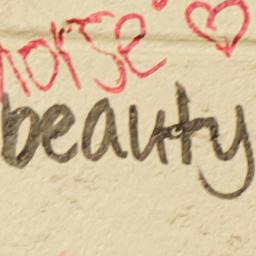 horse
beauty